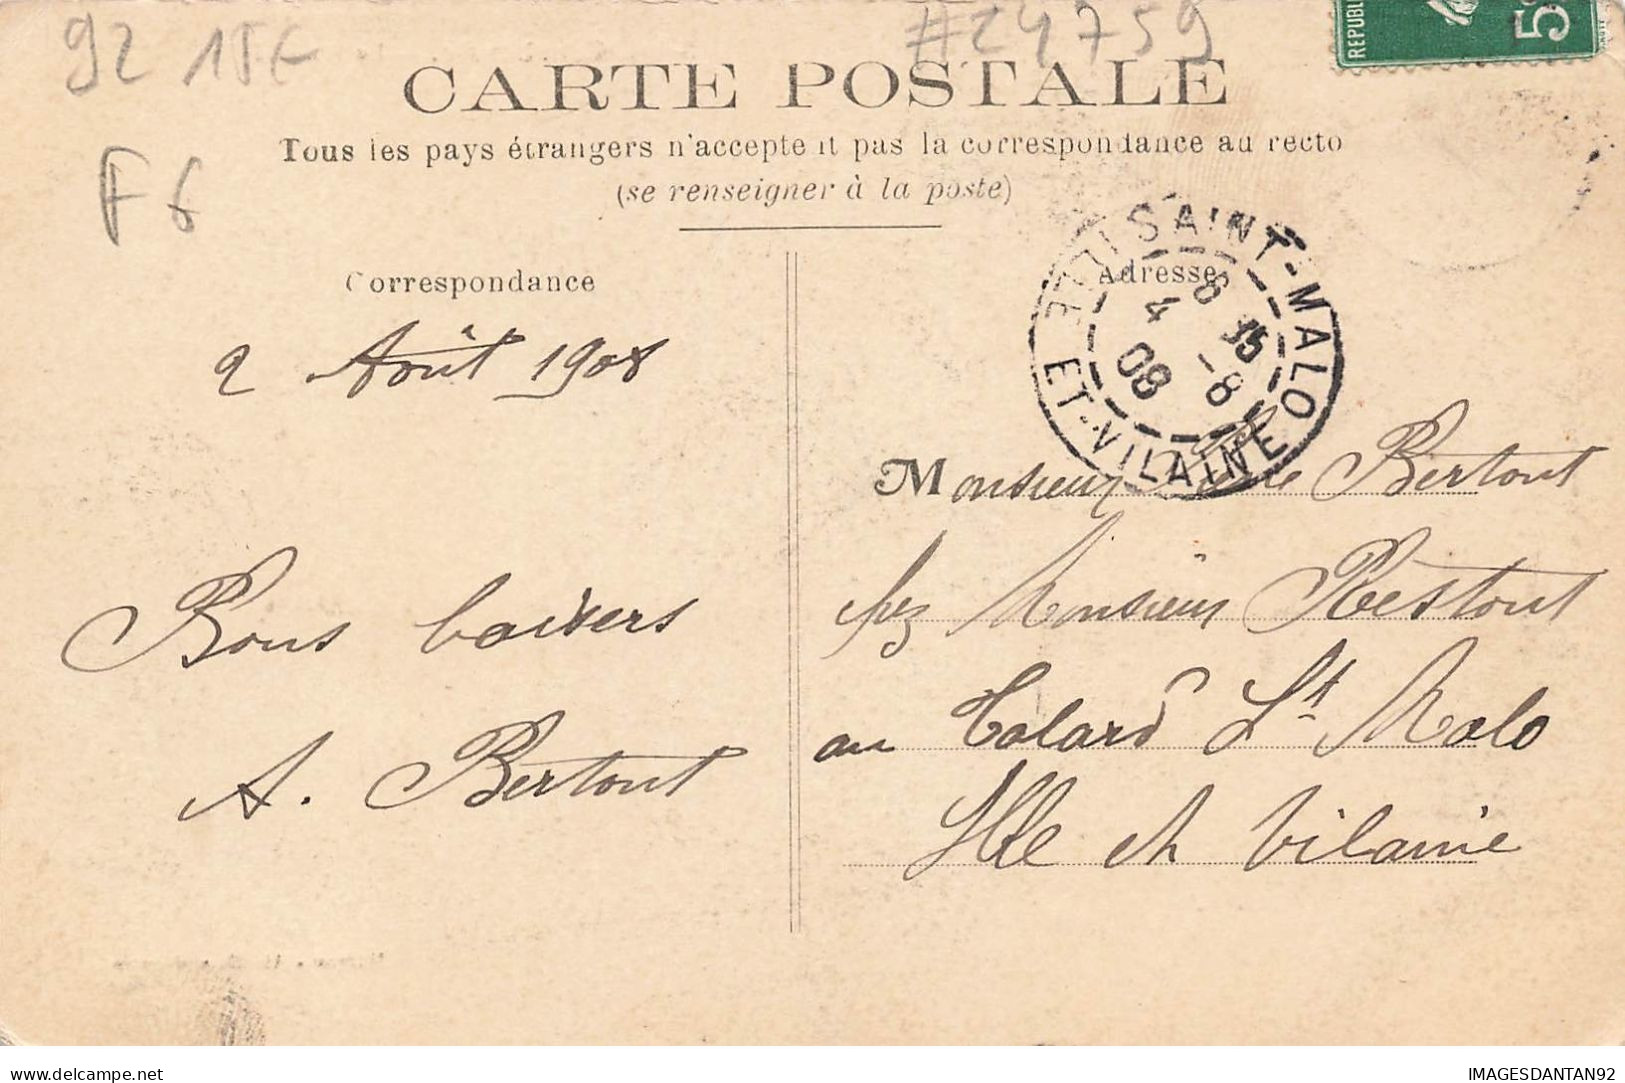 92 15€
#24759
REPUBL
5c
CARTE POSTALE
Tous les pays étrangers n'acceptent pas la correspondance au recto
(se renseigner à la poste)
F6
SAINT-MALO
ILLE ET-VILAINE
6 15
4 -8
08
Correspondance
2 Août 1908
Bons baisers
A. Bertout
Adresse
Monsieur Bertout
chez Monsieur Restout
au Talard St Malo
Ille et Vilaine
IMAGESDANTAN92